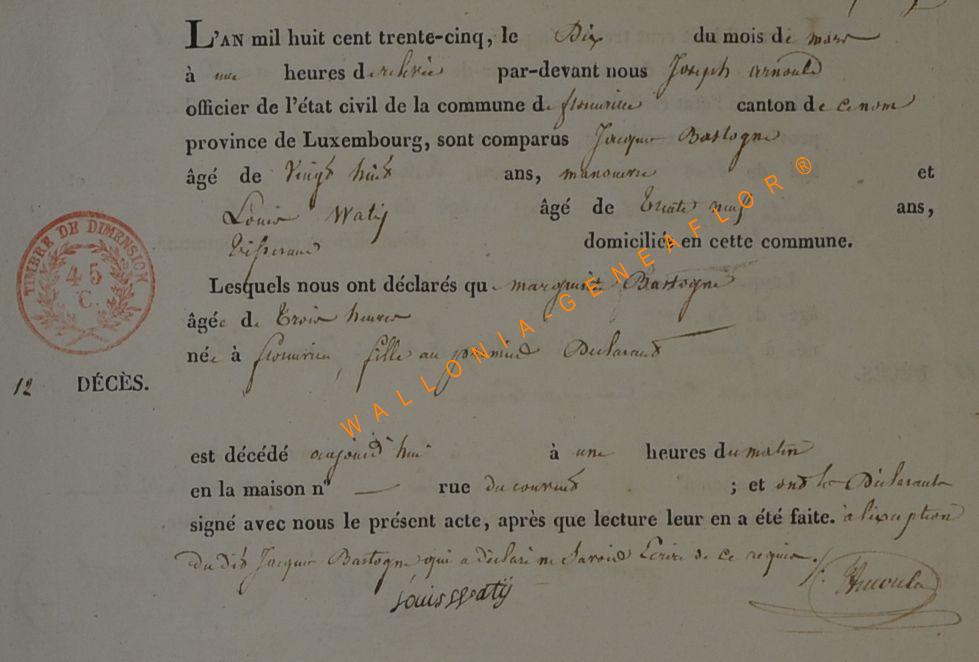 L'AN mil huit cent trente-cinq, le Dix du mois de mars
à une heures de relevée par-devant nous Joseph Arnould
officier de l'état civil de la commune de florenville canton de ce nom
province de Luxembourg, sont comparus Jacques Bastogne
âgé de Vingt huit ans, manoeuvre et
Louis Watÿ âgé de Trente neuf ans,
Tisserand domiciliés en cette commune.
Lesquels nous ont déclarés que marguerite Bastogne
âgée de Trois heures
née à florenville, fille au premier Déclarant
12 DÉCÈS.
est décédé aujourd'hui à une heures du matin
en la maison n° — rue du couvent ; et ont les Déclarants
signé avec nous le présent acte, après que lecture leur en a été faite. à l'exception
du dit Jacques Bastogne qui a déclaré ne savoir Ecrire de ce requis.
Louis Watÿ
Arnould
TIMBRE DE DIMENSION
45
C.
WALLONIA-GENEAFLOR®